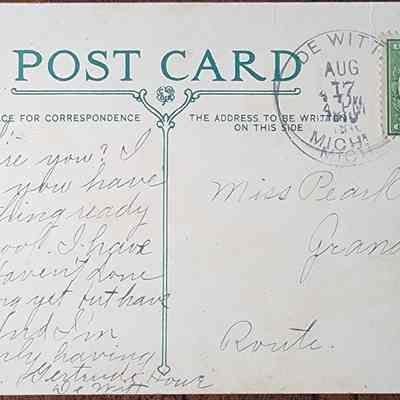 POST CARD
CE FOR CORRESPONDENCE
THE ADDRESS TO BE WRIT
ON THIS SIDE
DE WITT
AUG
17
MICH
MICH
re you? I
you have
ing ready
ool. I have
Haven't done
ng yet but have
And I'm
having
Gertrude
De Witt
Miss Pearl
Grand
Route.